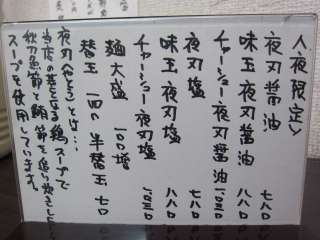 〈夜限定〉
夜刃醤油 七八〇
味玉夜刃醤油 八八〇
チャーシュー夜刃醤油 一〇三〇
夜刃塩 七八〇
味玉夜刃塩 八八〇
チャーシュー夜刃塩 一〇三〇
麺大盛 一〇〇増
替玉 一四〇 半替玉 七〇
夜刃とは…
当店の となる鶏スープで
秋刀魚節と 節を追い炊きした
スープを使用しています。